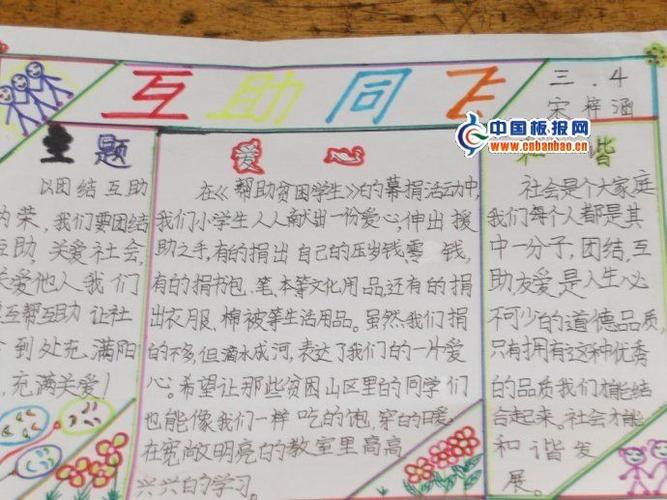 互助同飞
三.4
宋梓涵
中国板报网
www.cnbanbao.cn
主题
以团结互助
为荣,我们要团结
互助,关爱社会,
关爱他人我们
互帮互助 让社
会到处充满阳
充满关爱!
爱心
在《帮助贫困学生》的募捐活动中,
我们小学生人人献出一份爱心,伸出援
助之手,有的捐出自己的压岁钱零钱,
有的捐书包、笔、本等文化用品,还有的捐
出衣服、棉被等生活用品。虽然我们捐
的不多,但滴水成河,表达了我们的一片爱
心。希望让那些贫困山区里的同学们
也能像我们一样吃的饱,穿的暖,
在宽敞明亮的教室里高高
兴兴的学习。
谐
社会是个大家庭
我们每个人都是其
中一分子,团结,互
助,友爱是人生必
不可少的道德品质
只有拥有这种优秀
的品质我们才能结
合起来。社会才能
和谐发
展。